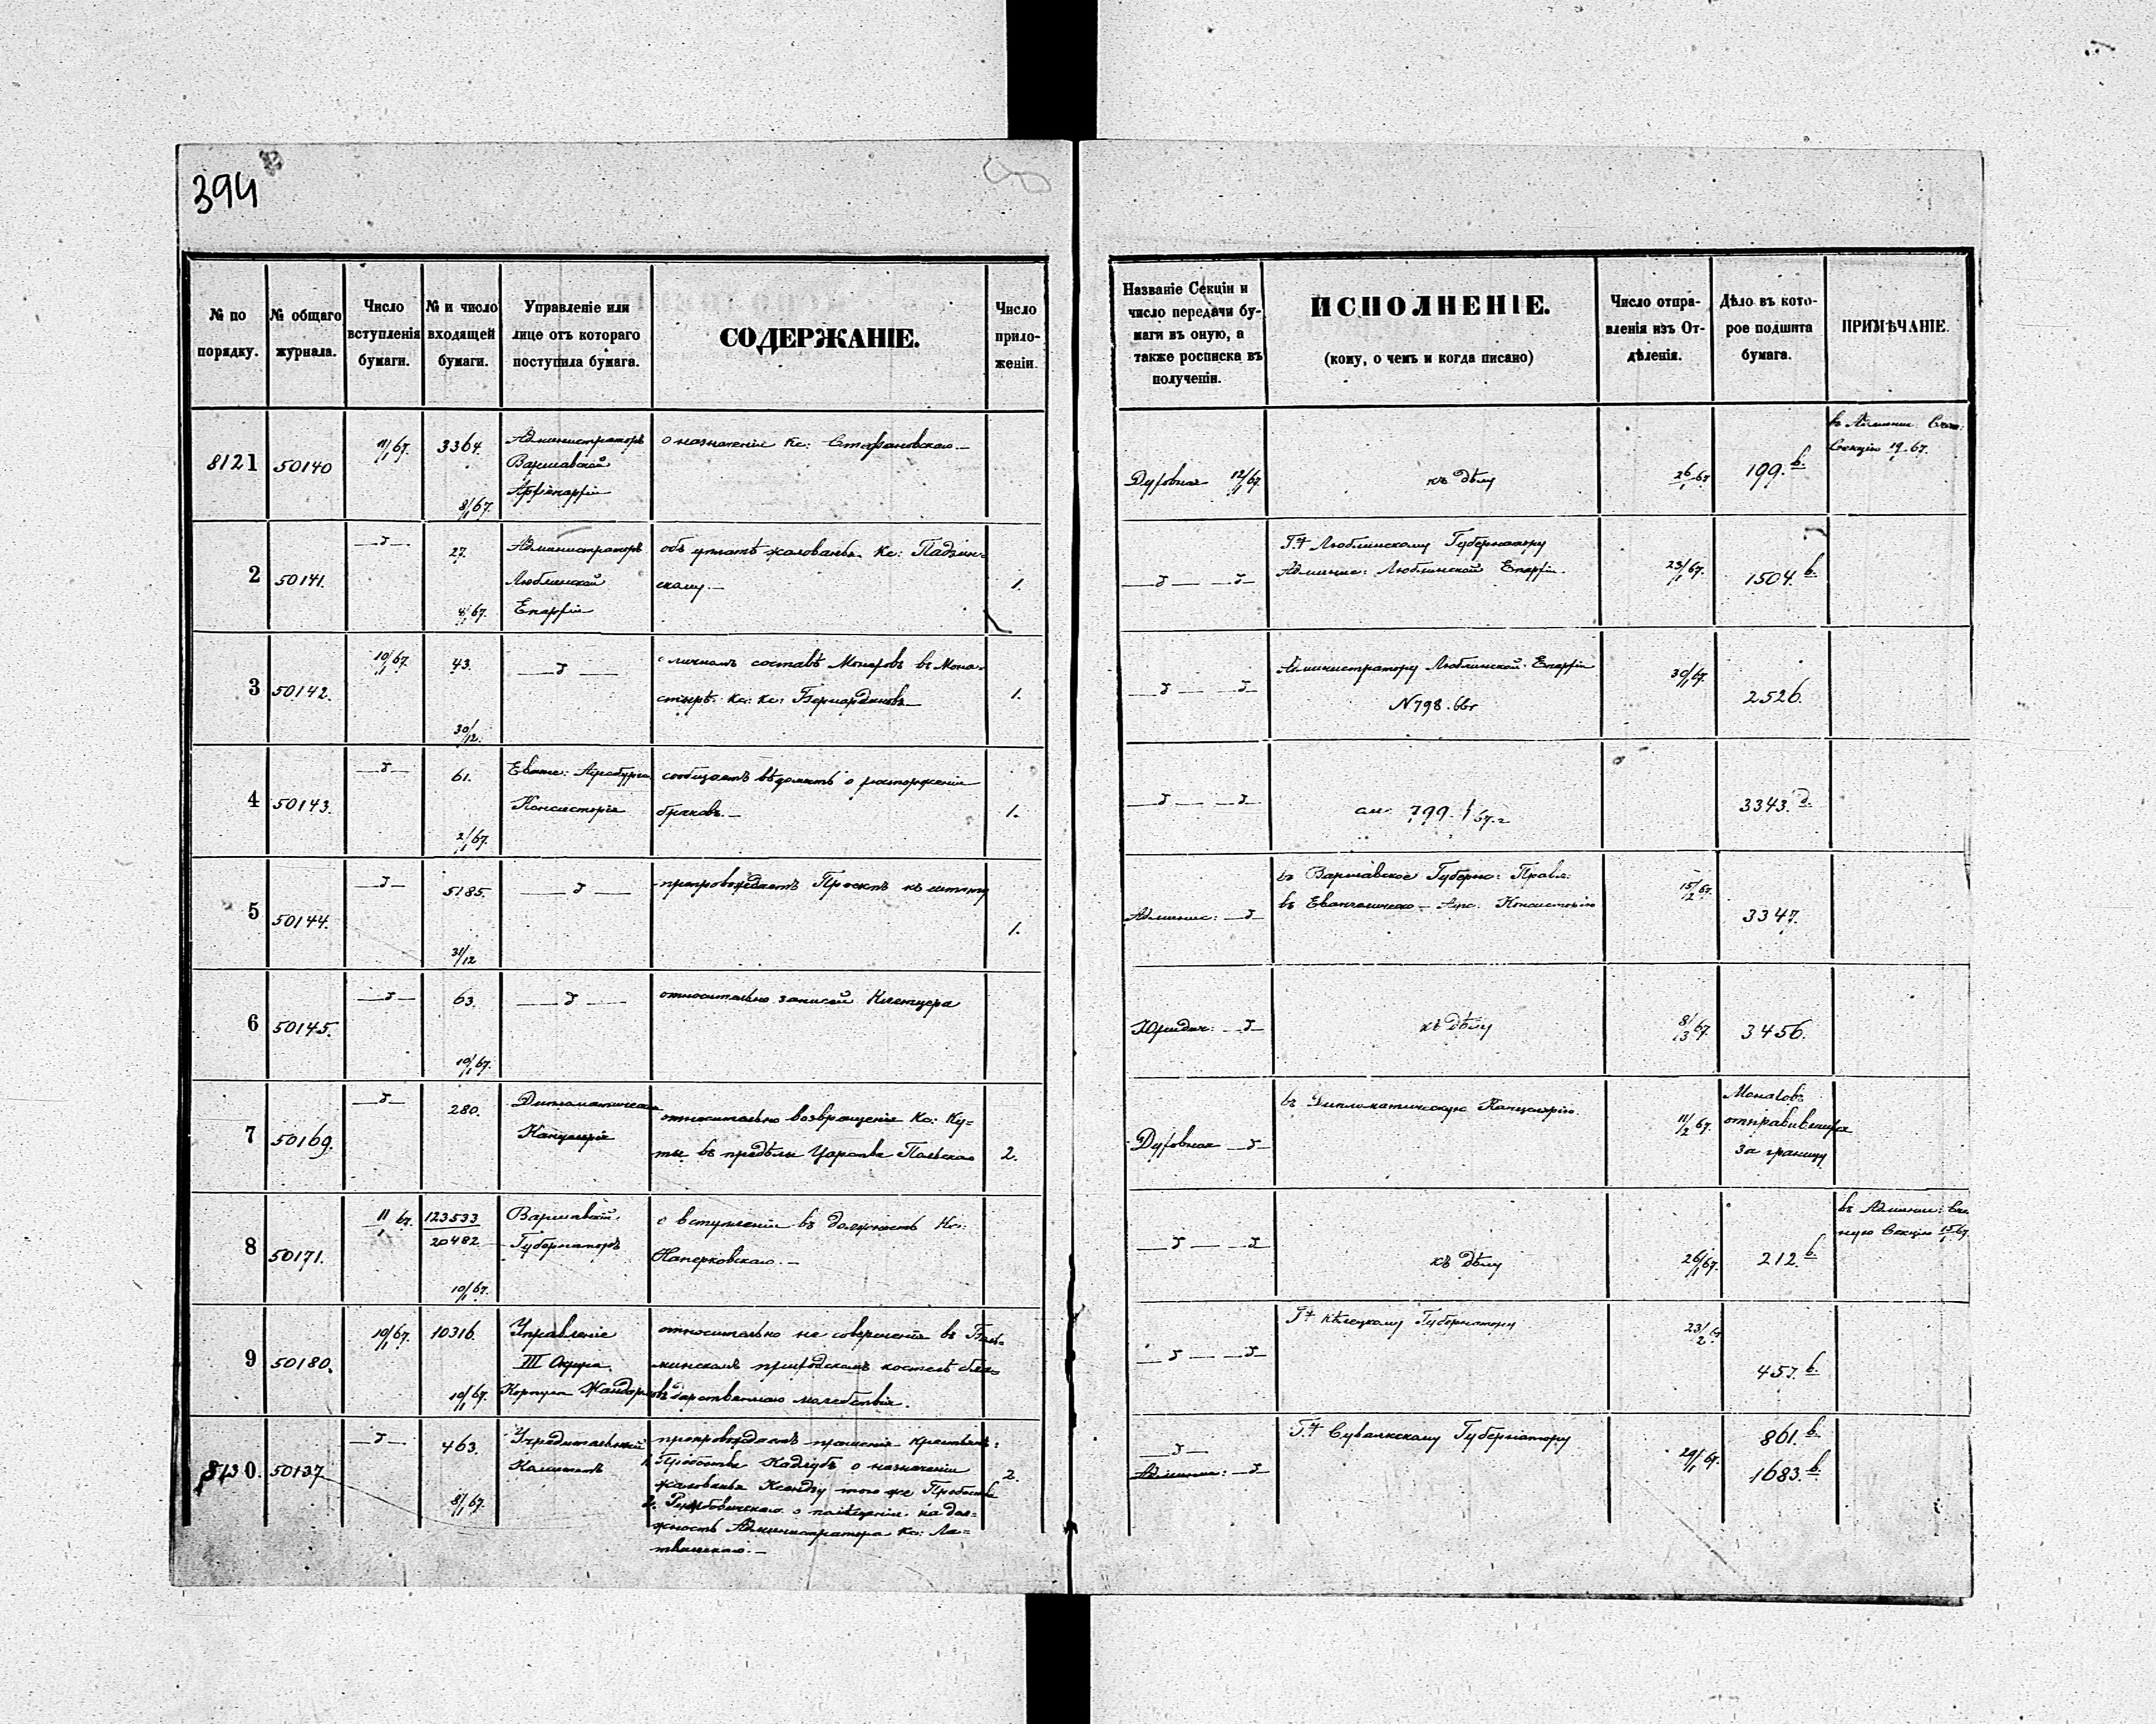 394
№ по порядку.
№ общаго журнала.
Число вступленія бумаги.
№ и число входящей бумаги.
Управленіе или лице отъ котораго поступила бумага.
СОДЕРЖАНІЕ.
Число прило-
женіи.
Названіе Секціи и
число передачи бу-
маги въ оную, а
также росписка въ
полученіи.
ИСПОЛНЕНІЕ.
(кому, о чемъ и когда писано)
Число отпра-
вленія изъ От-
дѣленія.
Дѣло въ кото-
рое подшита
бумага.
ПРИМѢЧАНІЕ.
8121
50140
11/1 67.
3364.
8/1 67.
Администраторъ
Варшавской
Архіепархіи
о назначеніи Кс: Стефановскаго
Духовная 12/1 67
къ дѣлу
26/1 67
199. b.
въ Админис
Секцію 19/1 67.
2
50141.
27.
4/1 67.
Администраторъ
Люблинской
Епархіи
объ уплатѣ жалованья Кс: Падзин-
скому.
1.
Гну Люблинскому Губернатору
Админис: Люблинской Епархіи.
23/1 67.
1504. b.
3
50142.
10/1 67.
43.
30/12.
о личномъ составѣ Монаховъ въ Мона-
стырѣ Кс: Кс: Бернардиновъ
1.
Администратору Люблинской Епархіи
N 798.
30/1 67.
2526.
4
50143.
61.
2/1 67.
Еванг: Аугсбургс.
Консисторія
сообщаетъ вѣдомость о расторженіи
браковъ.
1.
см. 799.
3343. д.
5
50144.
5185.
31/12
препровождаетъ Проектъ къ
1.
Админис:
въ Варшавское Губерн: Правл:
въ Евангелическо-Аугс. Консисторію
15/12 67.
3347.
6
50145.
63.
10/1 67.
относительно записей
Юридич:
къ дѣлу
8/3 67
3456.
7
50169.
280.
Дипломатическая
Канцелярія
относительно возвращенія Кс: Ку-
ты въ предѣлы Царства Польскаго
2.
Духовная
въ Дипломатическую Канцелярію.
11/2 67.
Монаховъ
отправившихся
за границу
8
50171.
11/1 67.
123533
20482
10/1 67.
Варшавскій
Губернаторъ
о вступленіи въ должность Кс:
Наперковскаго.
къ дѣлу
26/1 67.
212. b.
въ Админис:
ную Секцію 15/1 67.
9
50180.
10/1 67.
10316.
10/1 67.
Управленіе
III Округа
Корпуса Жандармовъ
относительно не совершенія въ
минскомъ приходскомъ костелѣ благо-
дарственнаго молебствія.
Гну Кѣлецкому Губернатору
23/2 67
457. b.
8130.
50197
463.
8/1 67.
Учредительный
Комитетъ
препровождаетъ прошенія крестьянъ:
1. Пробства Кадлубъ о назначеніи
жалованья Ксендзу того же Пробства
о помѣщеніи на дол-
жность Администратора Кс:
2.
Админис:
Гну Сувалкскому Губернатору
29/1 67.
861. b.
1683. b.